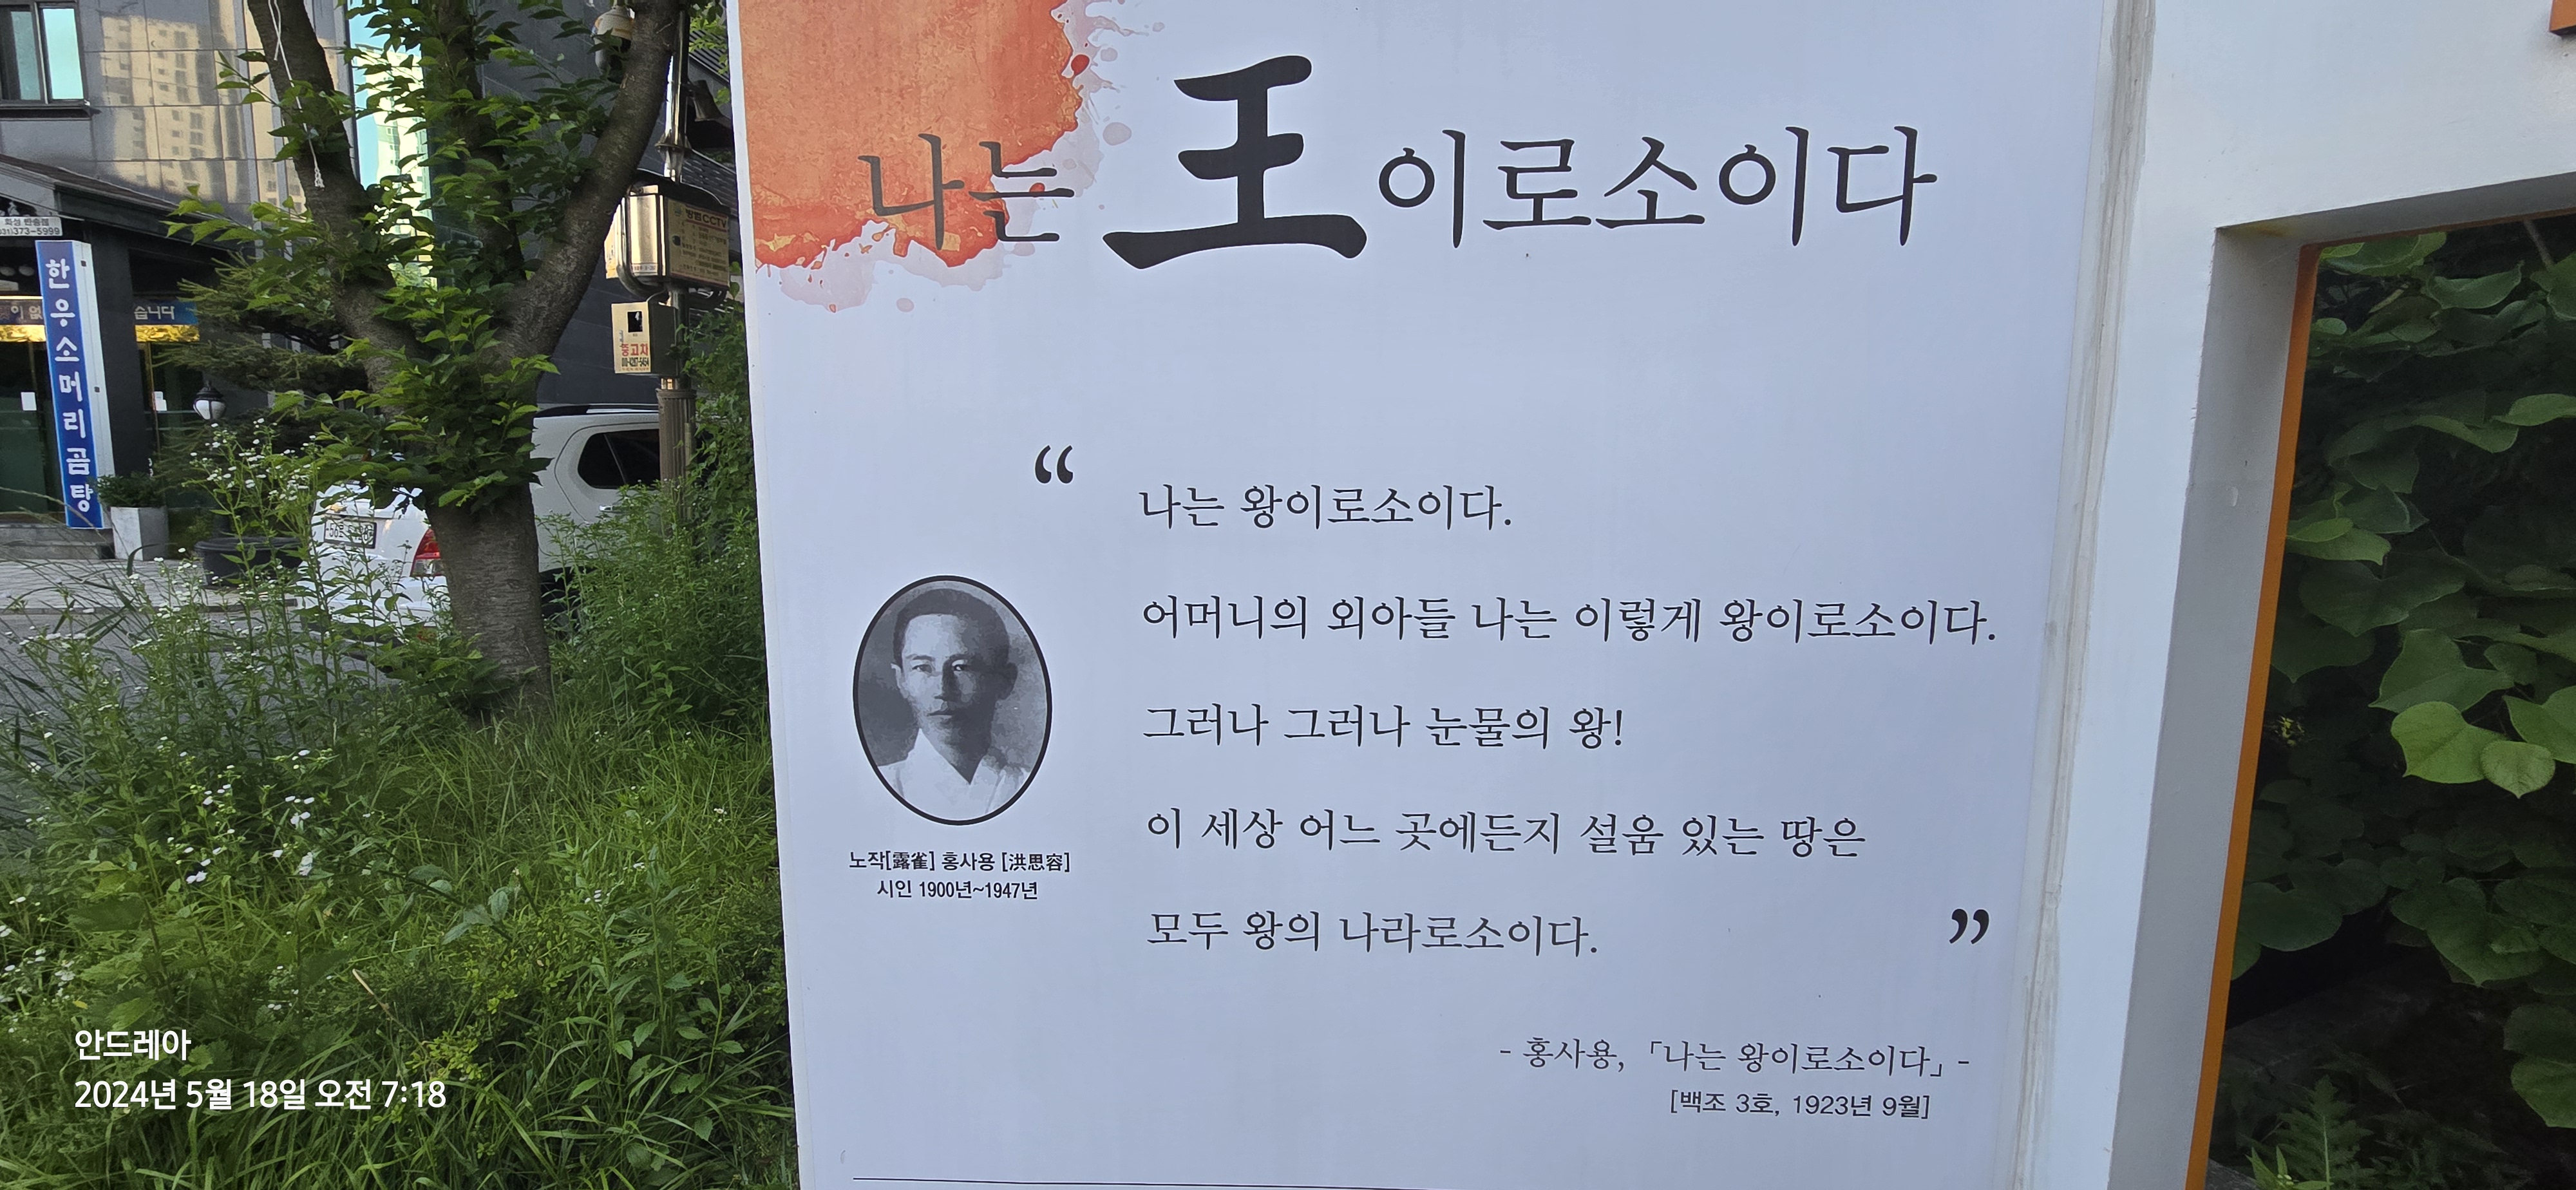 나는 王이로소이다
“
나는 왕이로소이다.
어머니의 외아들 나는 이렇게 왕이로소이다.
그러나 그러나 눈물의 왕!
이 세상 어느 곳에든지 설움 있는 땅은
모두 왕의 나라로소이다.
”
노작[露雀] 홍사용 [洪思容]
시인 1900년~1947년
- 홍사용, 「나는 왕이로소이다」 -
[백조 3호, 1923년 9월]
한우소머리곰탕
373-5999
습니다
CCTV
중고차
안드레아
2024년 5월 18일 오전 7:18